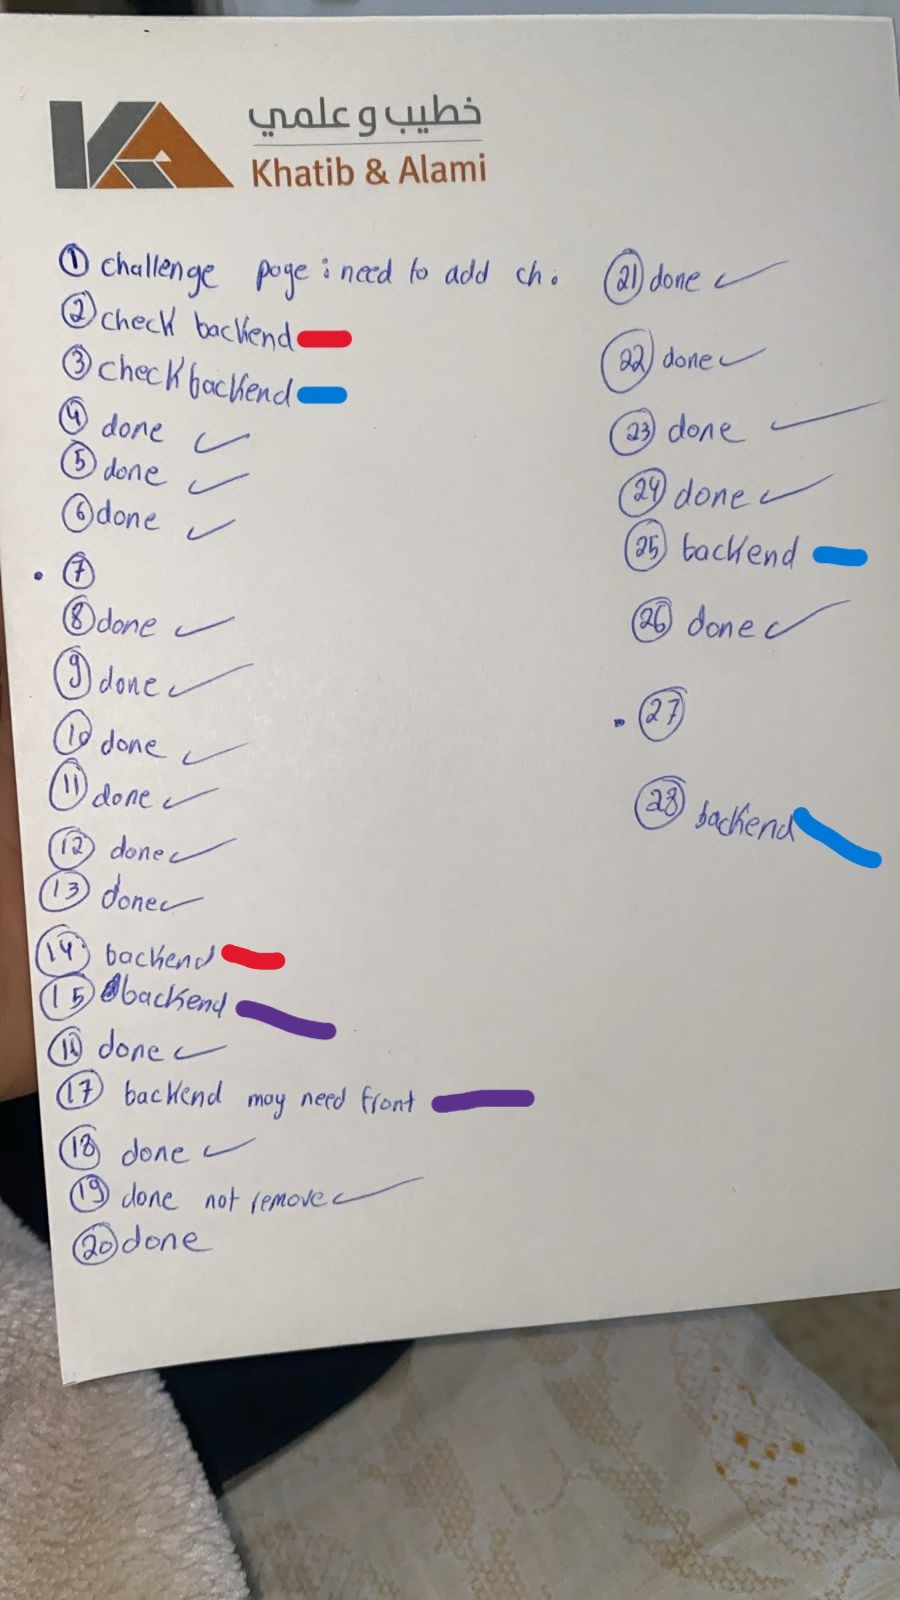 خطيب وعلمي
Khatib & Alami
① challenge page : need to add ch.
② check backend
③ check backend
④ done ✓
⑤ done ✓
⑥ done ✓
• ⑦
⑧ done ✓
⑨ done ✓
⑩ done ✓
⑪ done ✓
⑫ done ✓
⑬ done ✓
⑭ backend
⑮ backend
⑯ done ✓
⑰ backend may need front
⑱ done ✓
⑲ done not remove ✓
⑳ done
㉑ done ✓
㉒ done ✓
㉓ done ✓
㉔ done ✓
㉕ backend
㉖ done ✓
• ㉗
㉘ backend